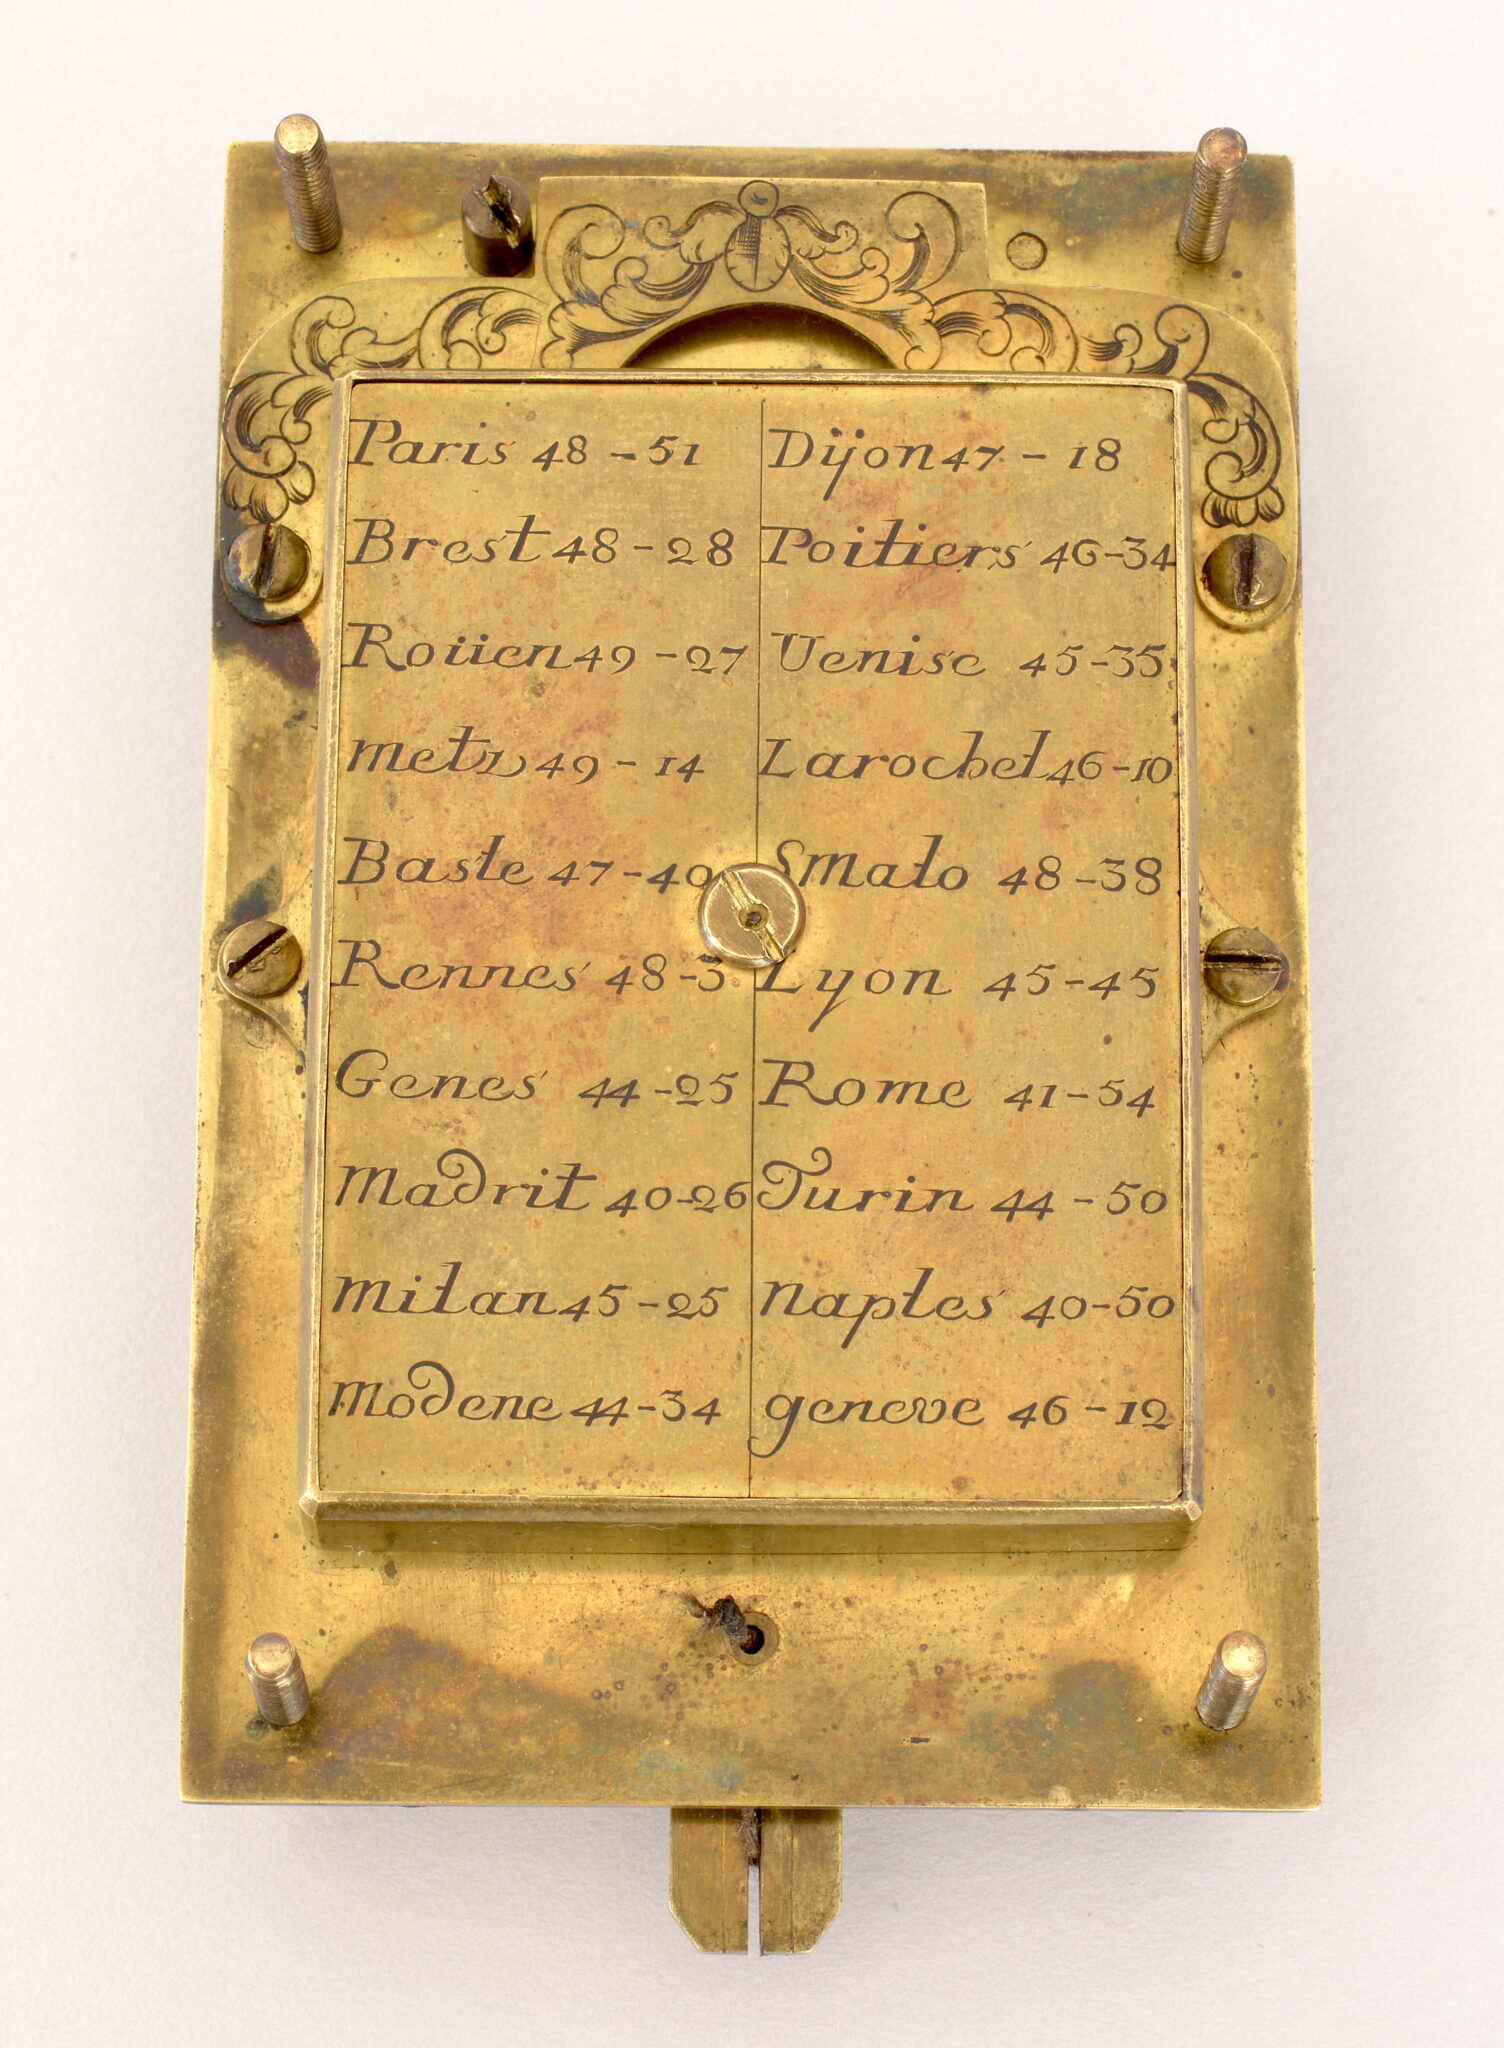 Paris 48 - 51
Brest 48 - 28
Roüen 49 - 27
Metz 49 - 14
Basle 47 - 40
Rennes 48 - 3
Genes 44 - 25
Madrit 40 - 26
Milan 45 - 25
Modene 44 - 34
Dijon 47 - 18
Poitiers 46 - 34
Venise 45 - 35
Larochel 46 - 10
SMalo 48 - 38
Lyon 45 - 45
Rome 41 - 54
Turin 44 - 50
Naples 40 - 50
geneve 46 - 12